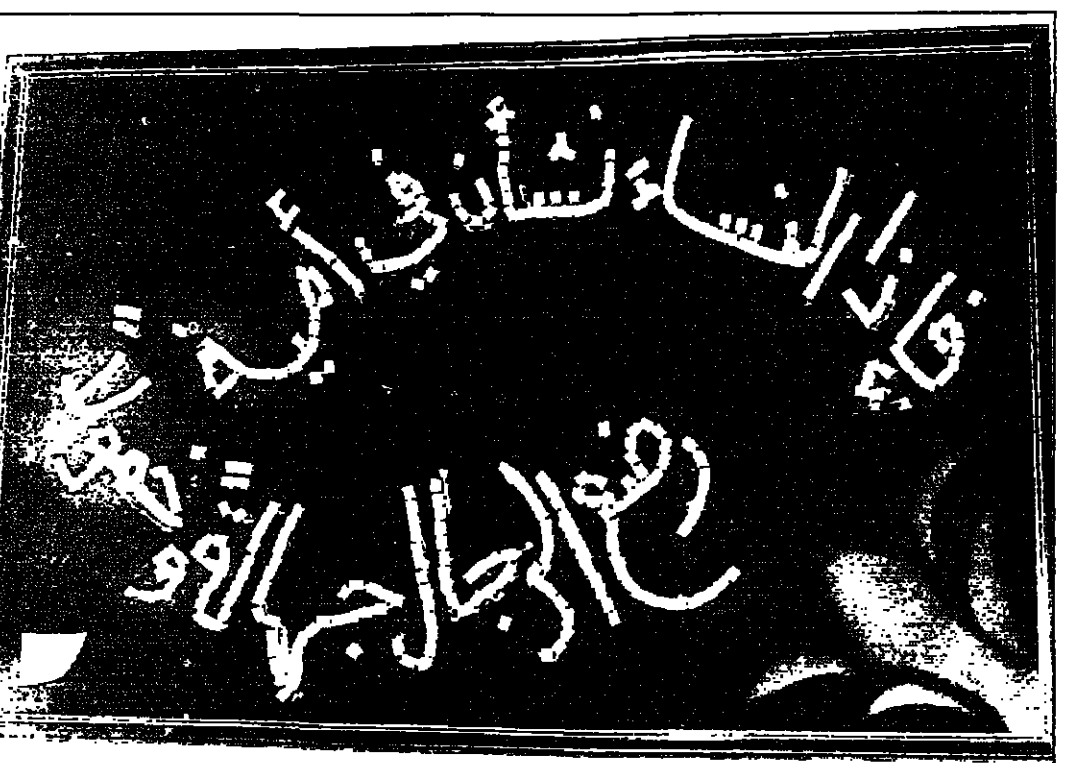 فإذا النساءَ نشأن في أمية
رضع الرجال جهالةً وخمولاً